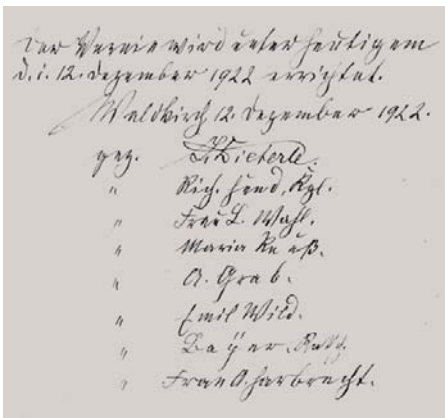 Der Verein wird unter heutigem
d. i. 12. Dezember 1922 errichtet.
Waldkirch 12. Dezember 1922.
gez. Dieterle.
" Rich.
" Frau L. Wahl.
" Maria Reuß.
" A. Grab.
" Emil Wild.
" Bayer.
" Frau A. Harbrecht.